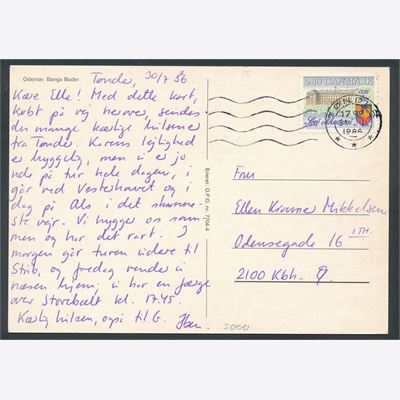 Odense: Bangs Boder
Tønder, 30/7 86.
Kære Elle! Med dette kort,
købt på vej herover, sendes
du mange kærlige hilsener
fra Tønder. Karens lejlighed
er hyggelig, men vi er jo
ude på tur hele dagen, i
går ved Vesterhavet og i
dag på Als i det skønne-
ste vejr. Vi hygger os sam-
men og har det rart. I
morgen går turen videre til
Strib, og fredag vender vi
næsen hjem; vi har en færge
over Storebælt kl. 17.45.
Kærlig hilsen, også til G.
Eneret: O.P.O. nr. 7704-4
280 DANMARK
TØNDER
1986
Fru
Ellen Krarner Mikkelsen
Odensegade 16 I TH.
2100 Kbh. Ø.
5000